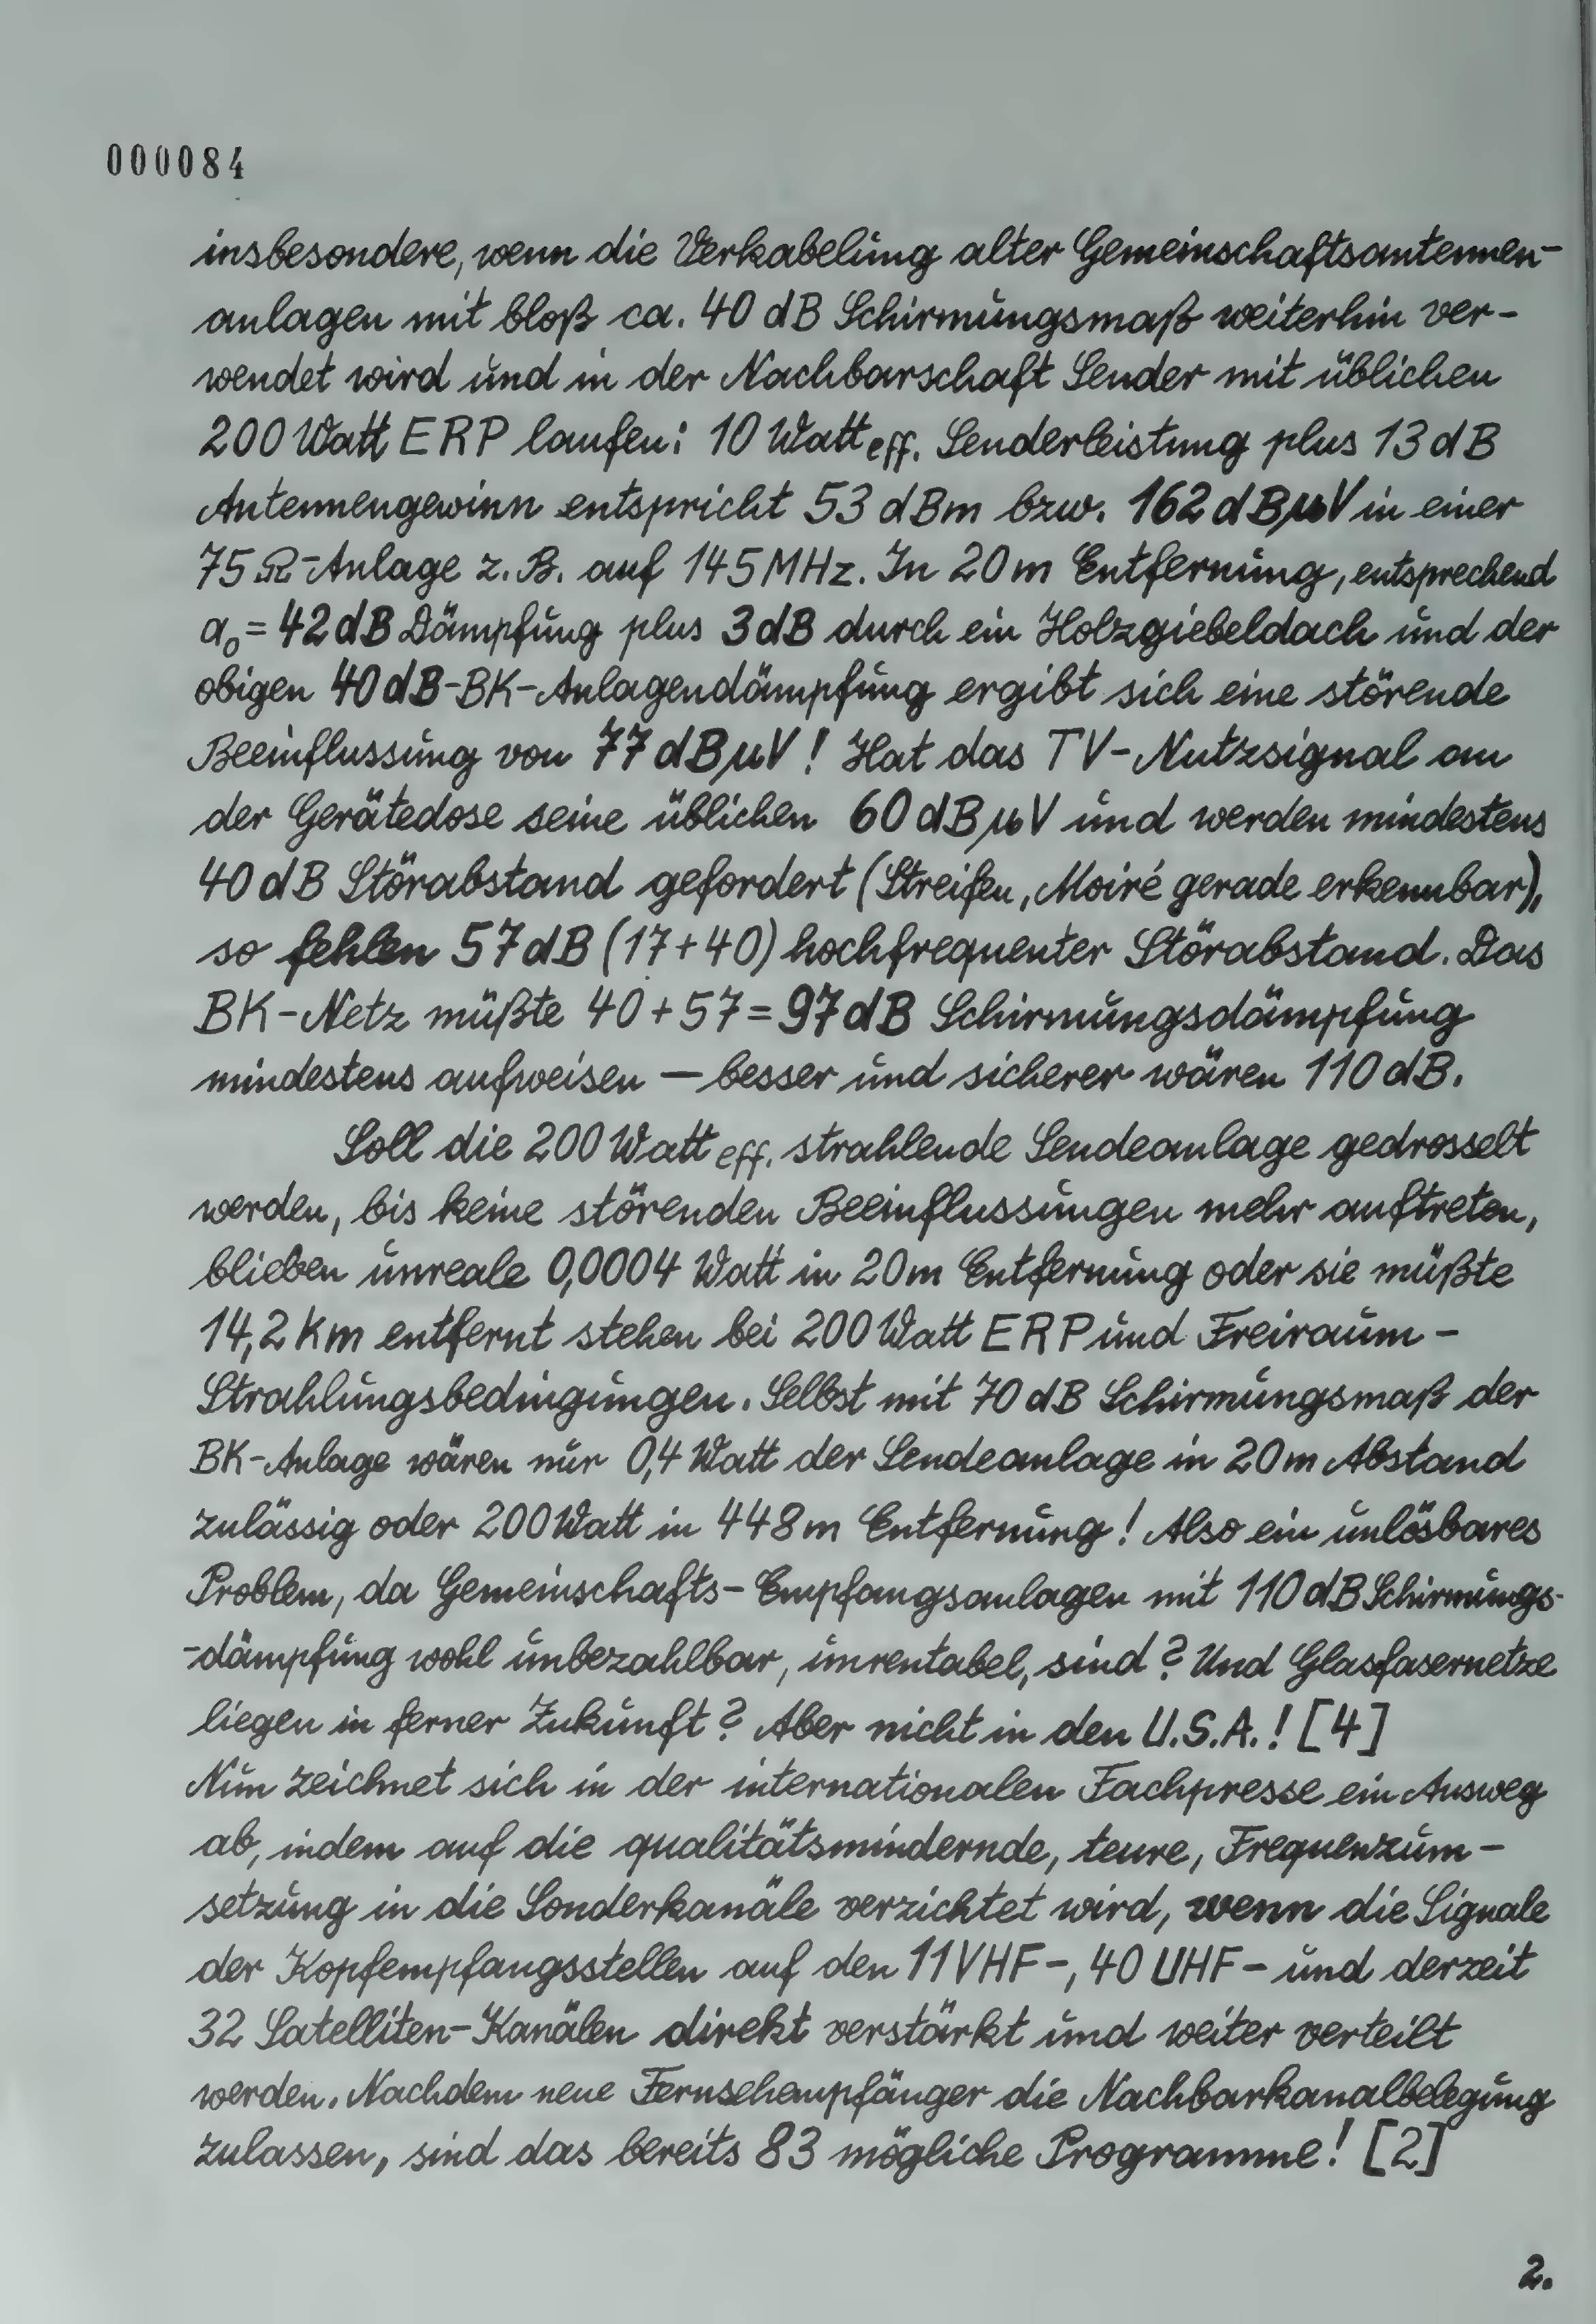 000084
insbesondere, wenn die Verkabelung alter Gemeinschaftsantennen-
anlagen mit bloß ca. 40 dB Schirmungsmaß weiterhin ver-
wendet wird und in der Nachbarschaft Sender mit üblichen
200 Watt ERP laufen: 10 Watt eff. Senderleistung plus 13 dB
Antennengewinn entspricht 53 dBm bzw. 162 dBµV in einer
75 Ω-Anlage z. B. auf 145 MHz. In 20 m Entfernung, entsprechend
a₀ = 42 dB Dämpfung plus 3 dB durch ein Holzgiebeldach und der
obigen 40 dB-BK-Anlagendämpfung ergibt sich eine störende
Beeinflussung von 77 dBµV! Hat das TV-Nutzsignal an
der Gerätedose seine üblichen 60 dBµV und werden mindestens
40 dB Störabstand gefordert (Streifen, Moiré gerade erkennbar),
so fehlen 57 dB (17 + 40) hochfrequenter Störabstand. Das
BK-Netz müßte 40 + 57 = 97 dB Schirmungsdämpfung
mindestens aufweisen — besser und sicherer wären 110 dB.
Soll die 200 Watt eff. strahlende Sendeanlage gedrosselt
werden, bis keine störenden Beeinflussungen mehr auftreten,
blieben unreale 0,0004 Watt in 20 m Entfernung oder sie müßte
14,2 km entfernt stehen bei 200 Watt ERP und Freiraum-
Strahlungsbedingungen. Selbst mit 70 dB Schirmungsmaß der
BK-Anlage wären nur 0,4 Watt der Sendeanlage in 20 m Abstand
zulässig oder 200 Watt in 448 m Entfernung! Also ein unlösbares
Problem, da Gemeinschafts-Empfangsanlagen mit 110 dB Schirmungs-
-dämpfung wohl unbezahlbar, unrentabel, sind? Und Glasfasernetze
liegen in ferner Zukunft? Aber nicht in den U.S.A.! [4]
Nun zeichnet sich in der internationalen Fachpresse ein Ausweg
ab, indem auf die qualitätsmindernde, teure, Frequenzum-
setzung in die Sonderkanäle verzichtet wird, wenn die Signale
der Kopfempfangsstellen auf den 11 VHF-, 40 UHF- und derzeit
32 Satelliten-Kanälen direkt verstärkt und weiter verteilt
werden. Nachdem neue Fernsehempfänger die Nachbarkanalbelegung
zulassen, sind das bereits 83 mögliche Programme! [2]
2.